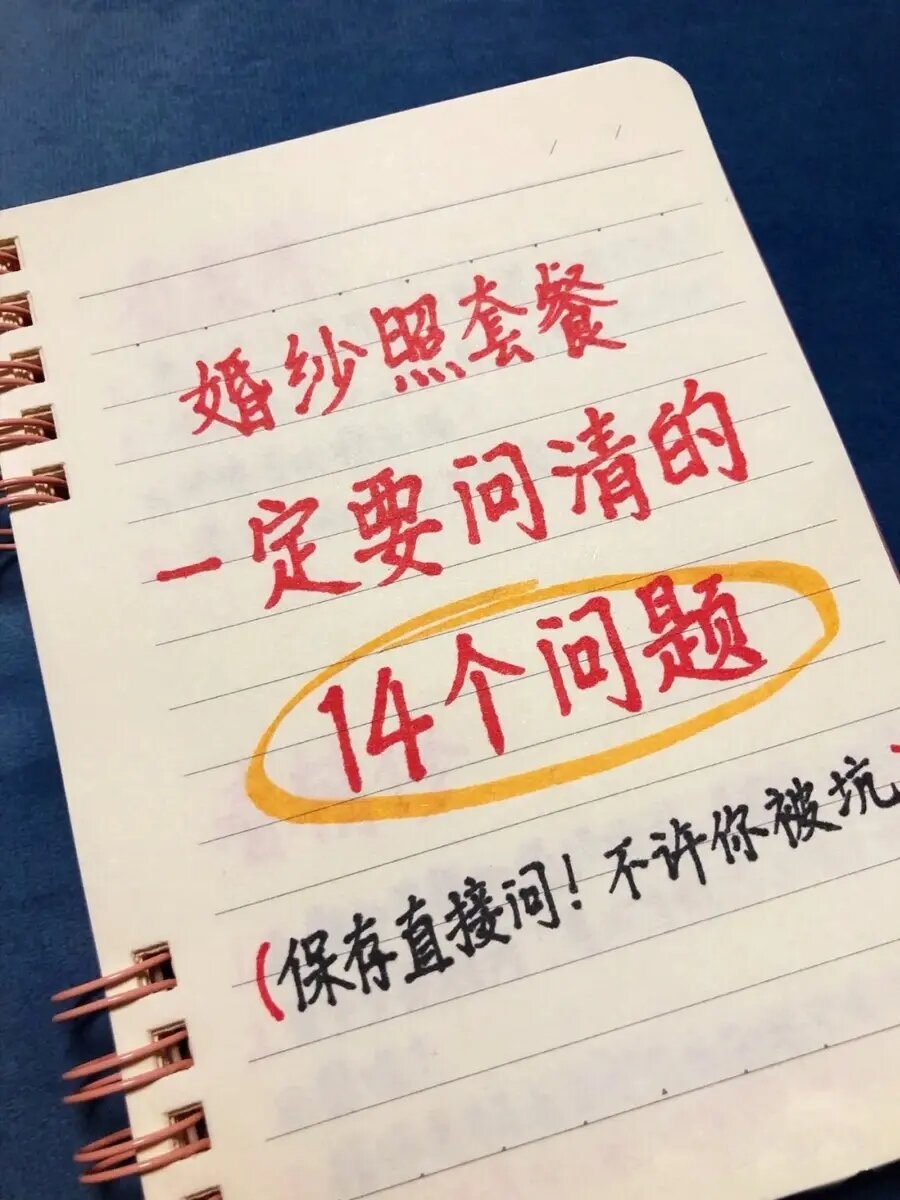 婚纱照套餐
一定要问清的
14个问题
(保存直接问！不许你被坑)